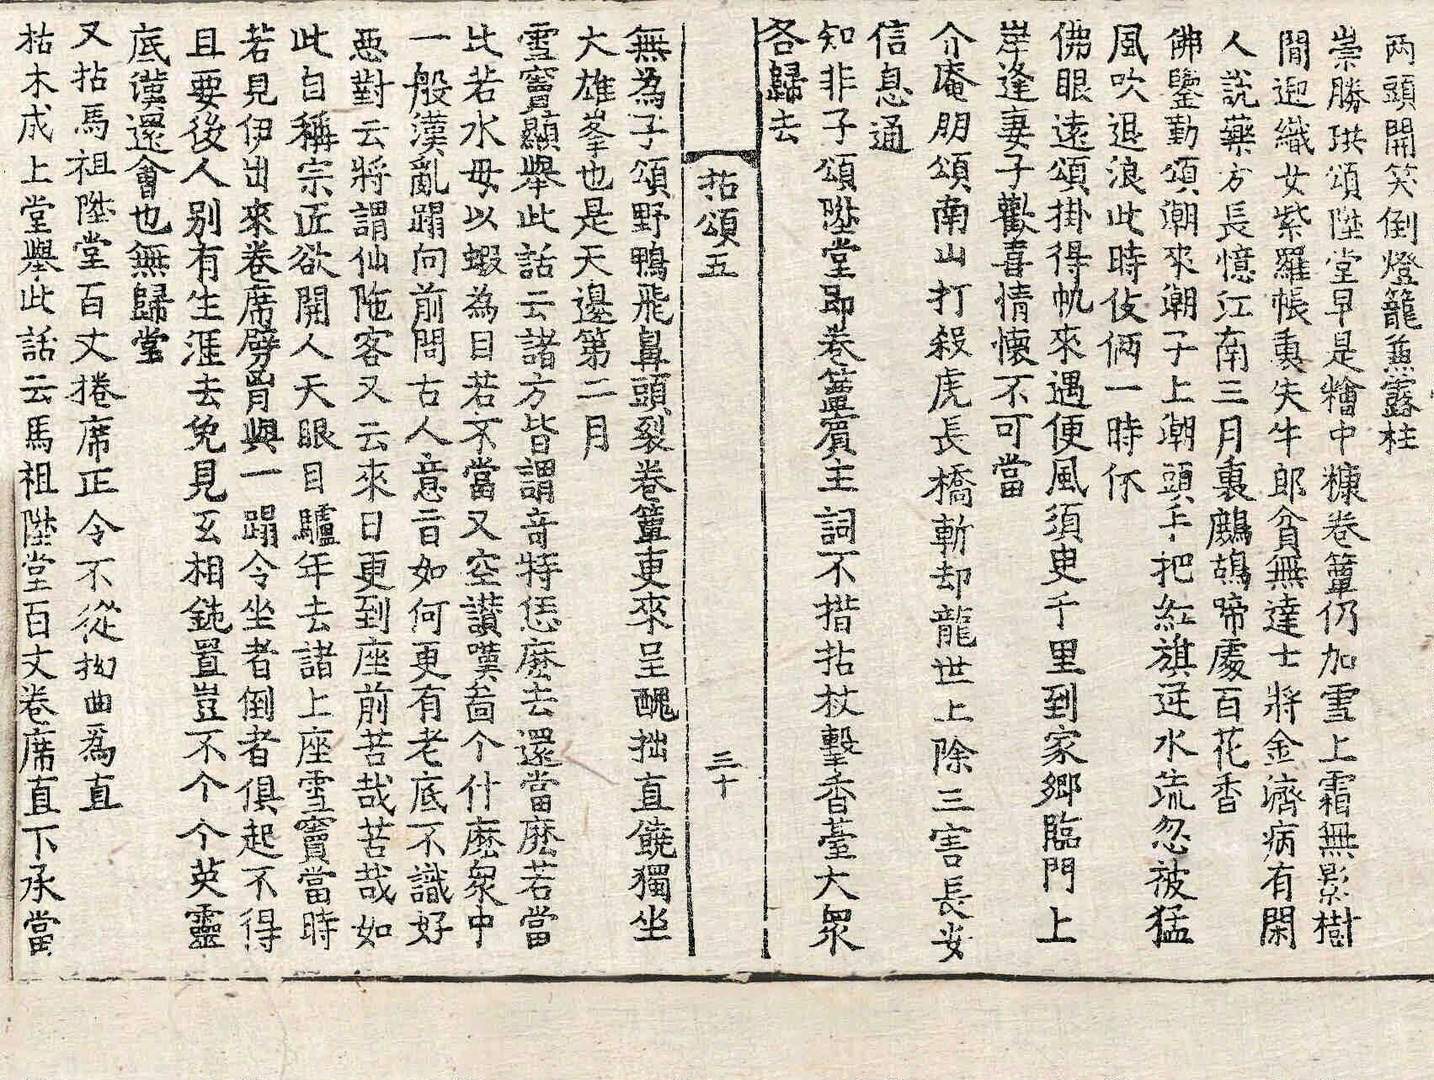 两頭開笑倒燈籠兼露柱
崇勝珙頌陞堂早是糟中糠卷簟仍加雪上霜無影樹
閒迎織女紫羅帳裏失牛郎貧無達士將金濟病有閑
人說藥方長憶江南三月裏鷓鴣啼處百花香
佛鑒勤頌潮來潮子上潮頭手把紅旗逆水流忽被猛
風吹退浪此時伎倆一時休
佛眼遠頌掛得帆來遇便風須臾千里到家鄉臨門上
岸逢妻子歡喜情懷不可當
介庵朋頌南山打殺虎長橋斬却龍世上除三害長安
信息通
知非子頌陞堂即卷簟賓主詞不措拈杖擊香臺大衆
各歸去
拈頌五 三十
無為子頌野鴨飛鼻頭裂卷簟更來呈醜拙直饒獨坐
大雄峯也是天邊第二月
雪竇顯舉此話云諸方皆謂奇特恁麽去還當麽若當
比若水母以蝦為目若不當又空讚嘆啚个什麽衆中
一般漢亂蹋向前問古人意旨如何更有老底不識好
惡對云將謂仙陁客又云來日更到座前苦哉苦哉如
此自稱宗匠欲開人天眼目驢年去諸上座雪竇當時
若見伊出來卷席劈胷與一蹋令坐者倒者俱起不得
且要後人别有生涯去免見玄相鈍置豈不个个英靈
底漢還會也無歸堂
又拈馬祖陞堂百丈捲席正令不從拗曲為直
枯木成上堂舉此話云馬祖陞堂百丈卷席直下承當